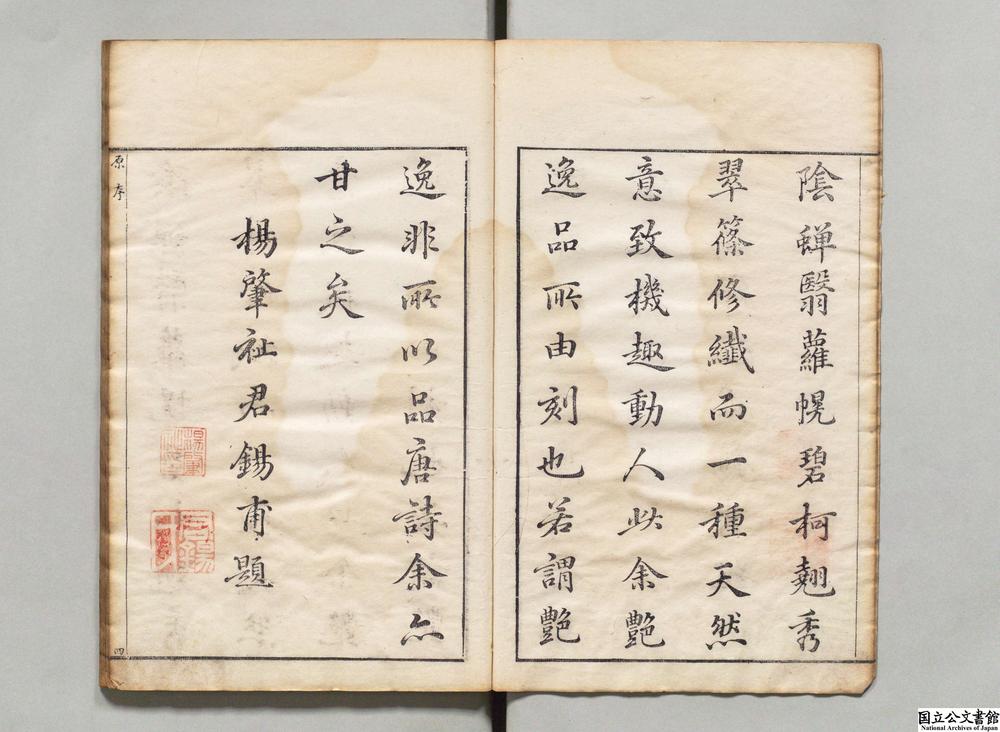 陰蟬翳蘿幌碧柯翹秀
翠篠修纖而一種天然
意致機趣動人此余艷
逸品所由刻也若謂艷
逸非所以品唐詩余亦
甘之矣
楊肇祉君錫甫題
原序
四
国立公文書館
National Archives of Japan